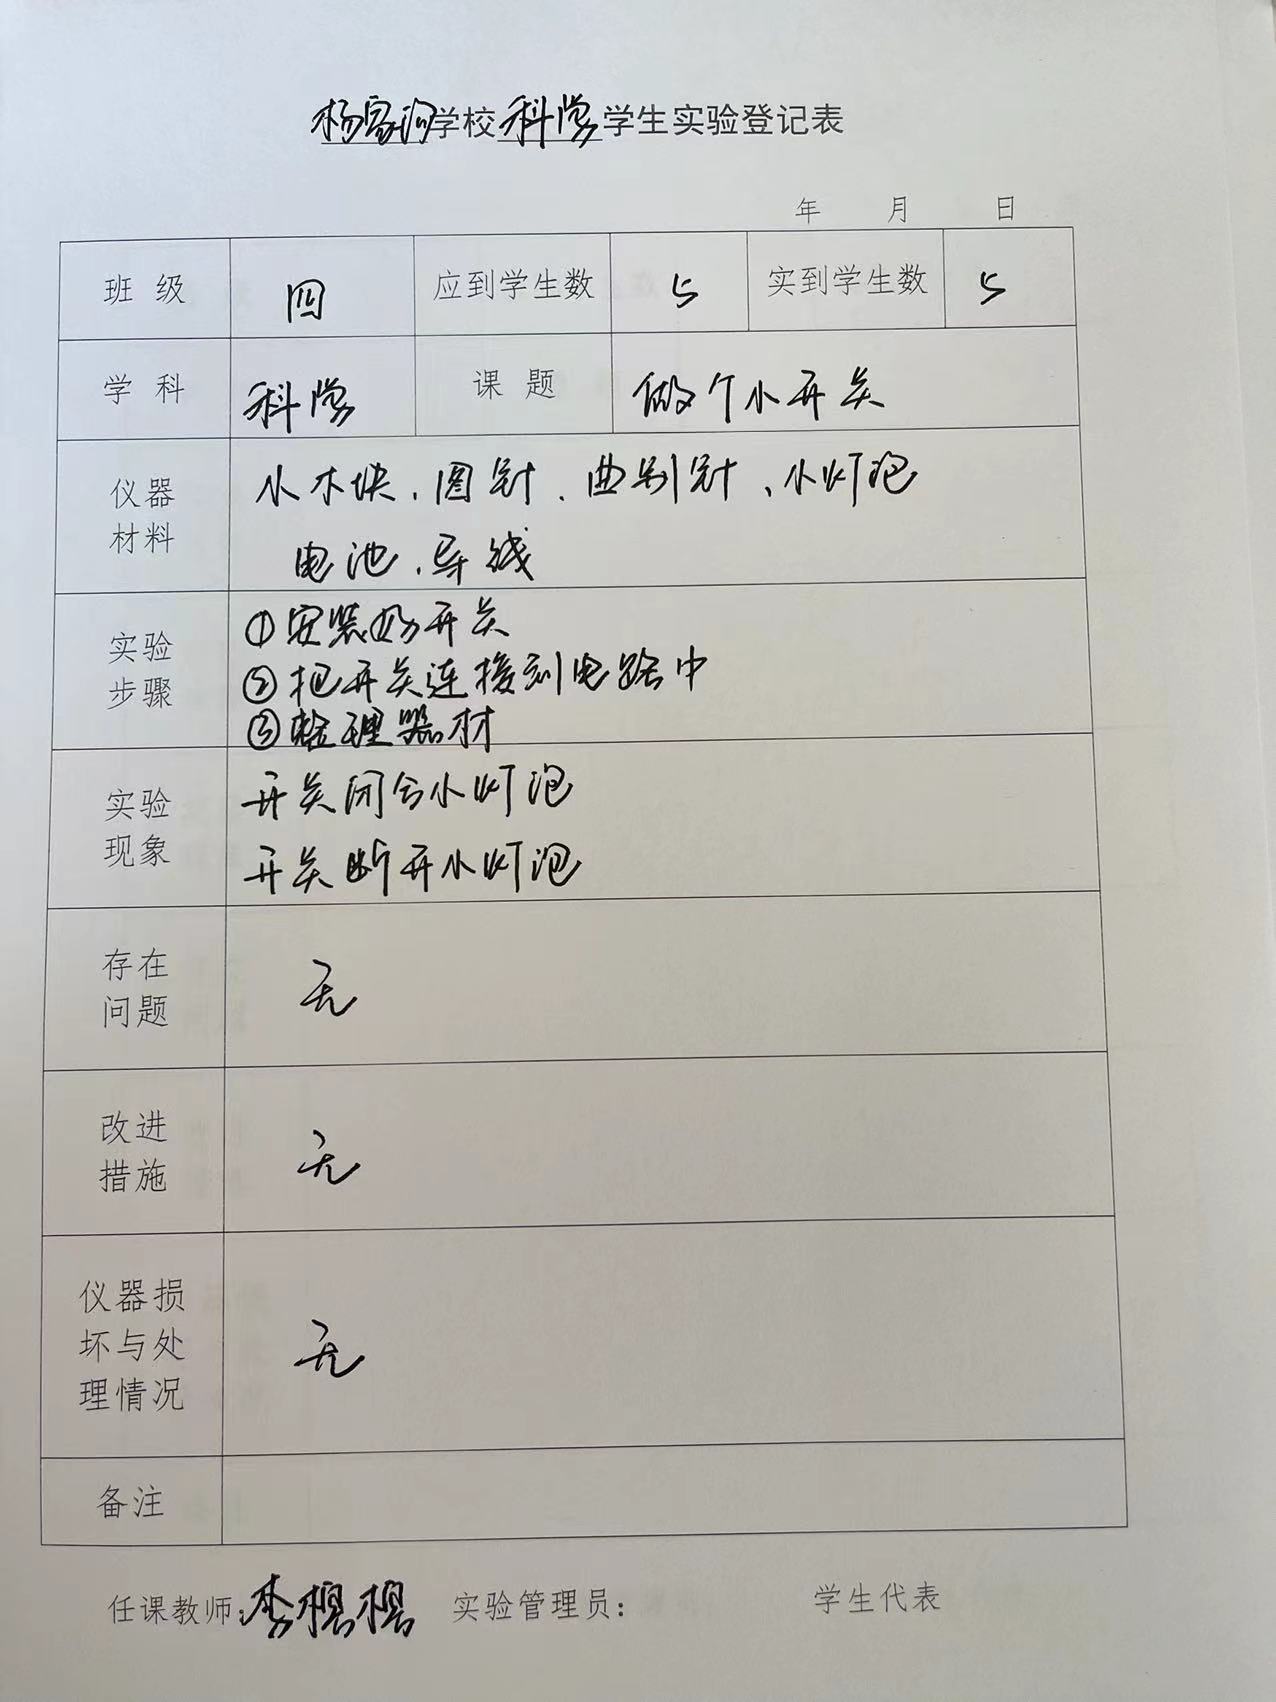 杨家沟学校科学学生实验登记表
年 月 日
班级 四 应到学生数 5 实到学生数 5
学科 科学 课题 做个小开关
仪器材料 小木块、图钉、曲别针、小灯泡
电池、导线
实验步骤 ①安装好开关
②把开关连接到电路中
③整理器材
实验现象 开关闭合小灯泡
开关断开小灯泡
存在问题 无
改进措施 无
仪器损坏与处理情况 无
备注
任课教师: 李 实验管理员: 学生代表